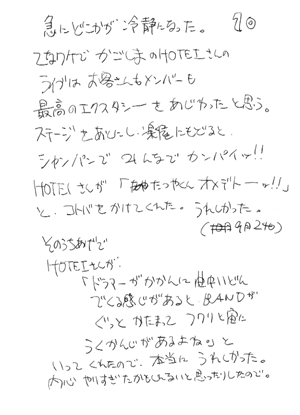 急にどこかが冷静になった。 10
てなワケで かごしまのHOTEIさんの
ライヴは お客さんもメンバーも
最高のエクスタシーをあじわったと思う。
ステージをあとにし、楽屋にもどると、
シャンパンで みんなで カンパイッ!!
HOTEIさんが 「たつやくん オメデトーッ!!」
と、コトバをかけてくれた。うれしかった。
(9月2
そのうちあげで
HOTEIさんが、
「ドラマーがかかんに いどん
でくる感じがあると、BANDが
ぐっと かたまって フワリと宙に
うくかんじがあるよね。」と
いってくれたので、本当に うれしかった。
内心 やりすぎたかもしれないと思ったりしたので。